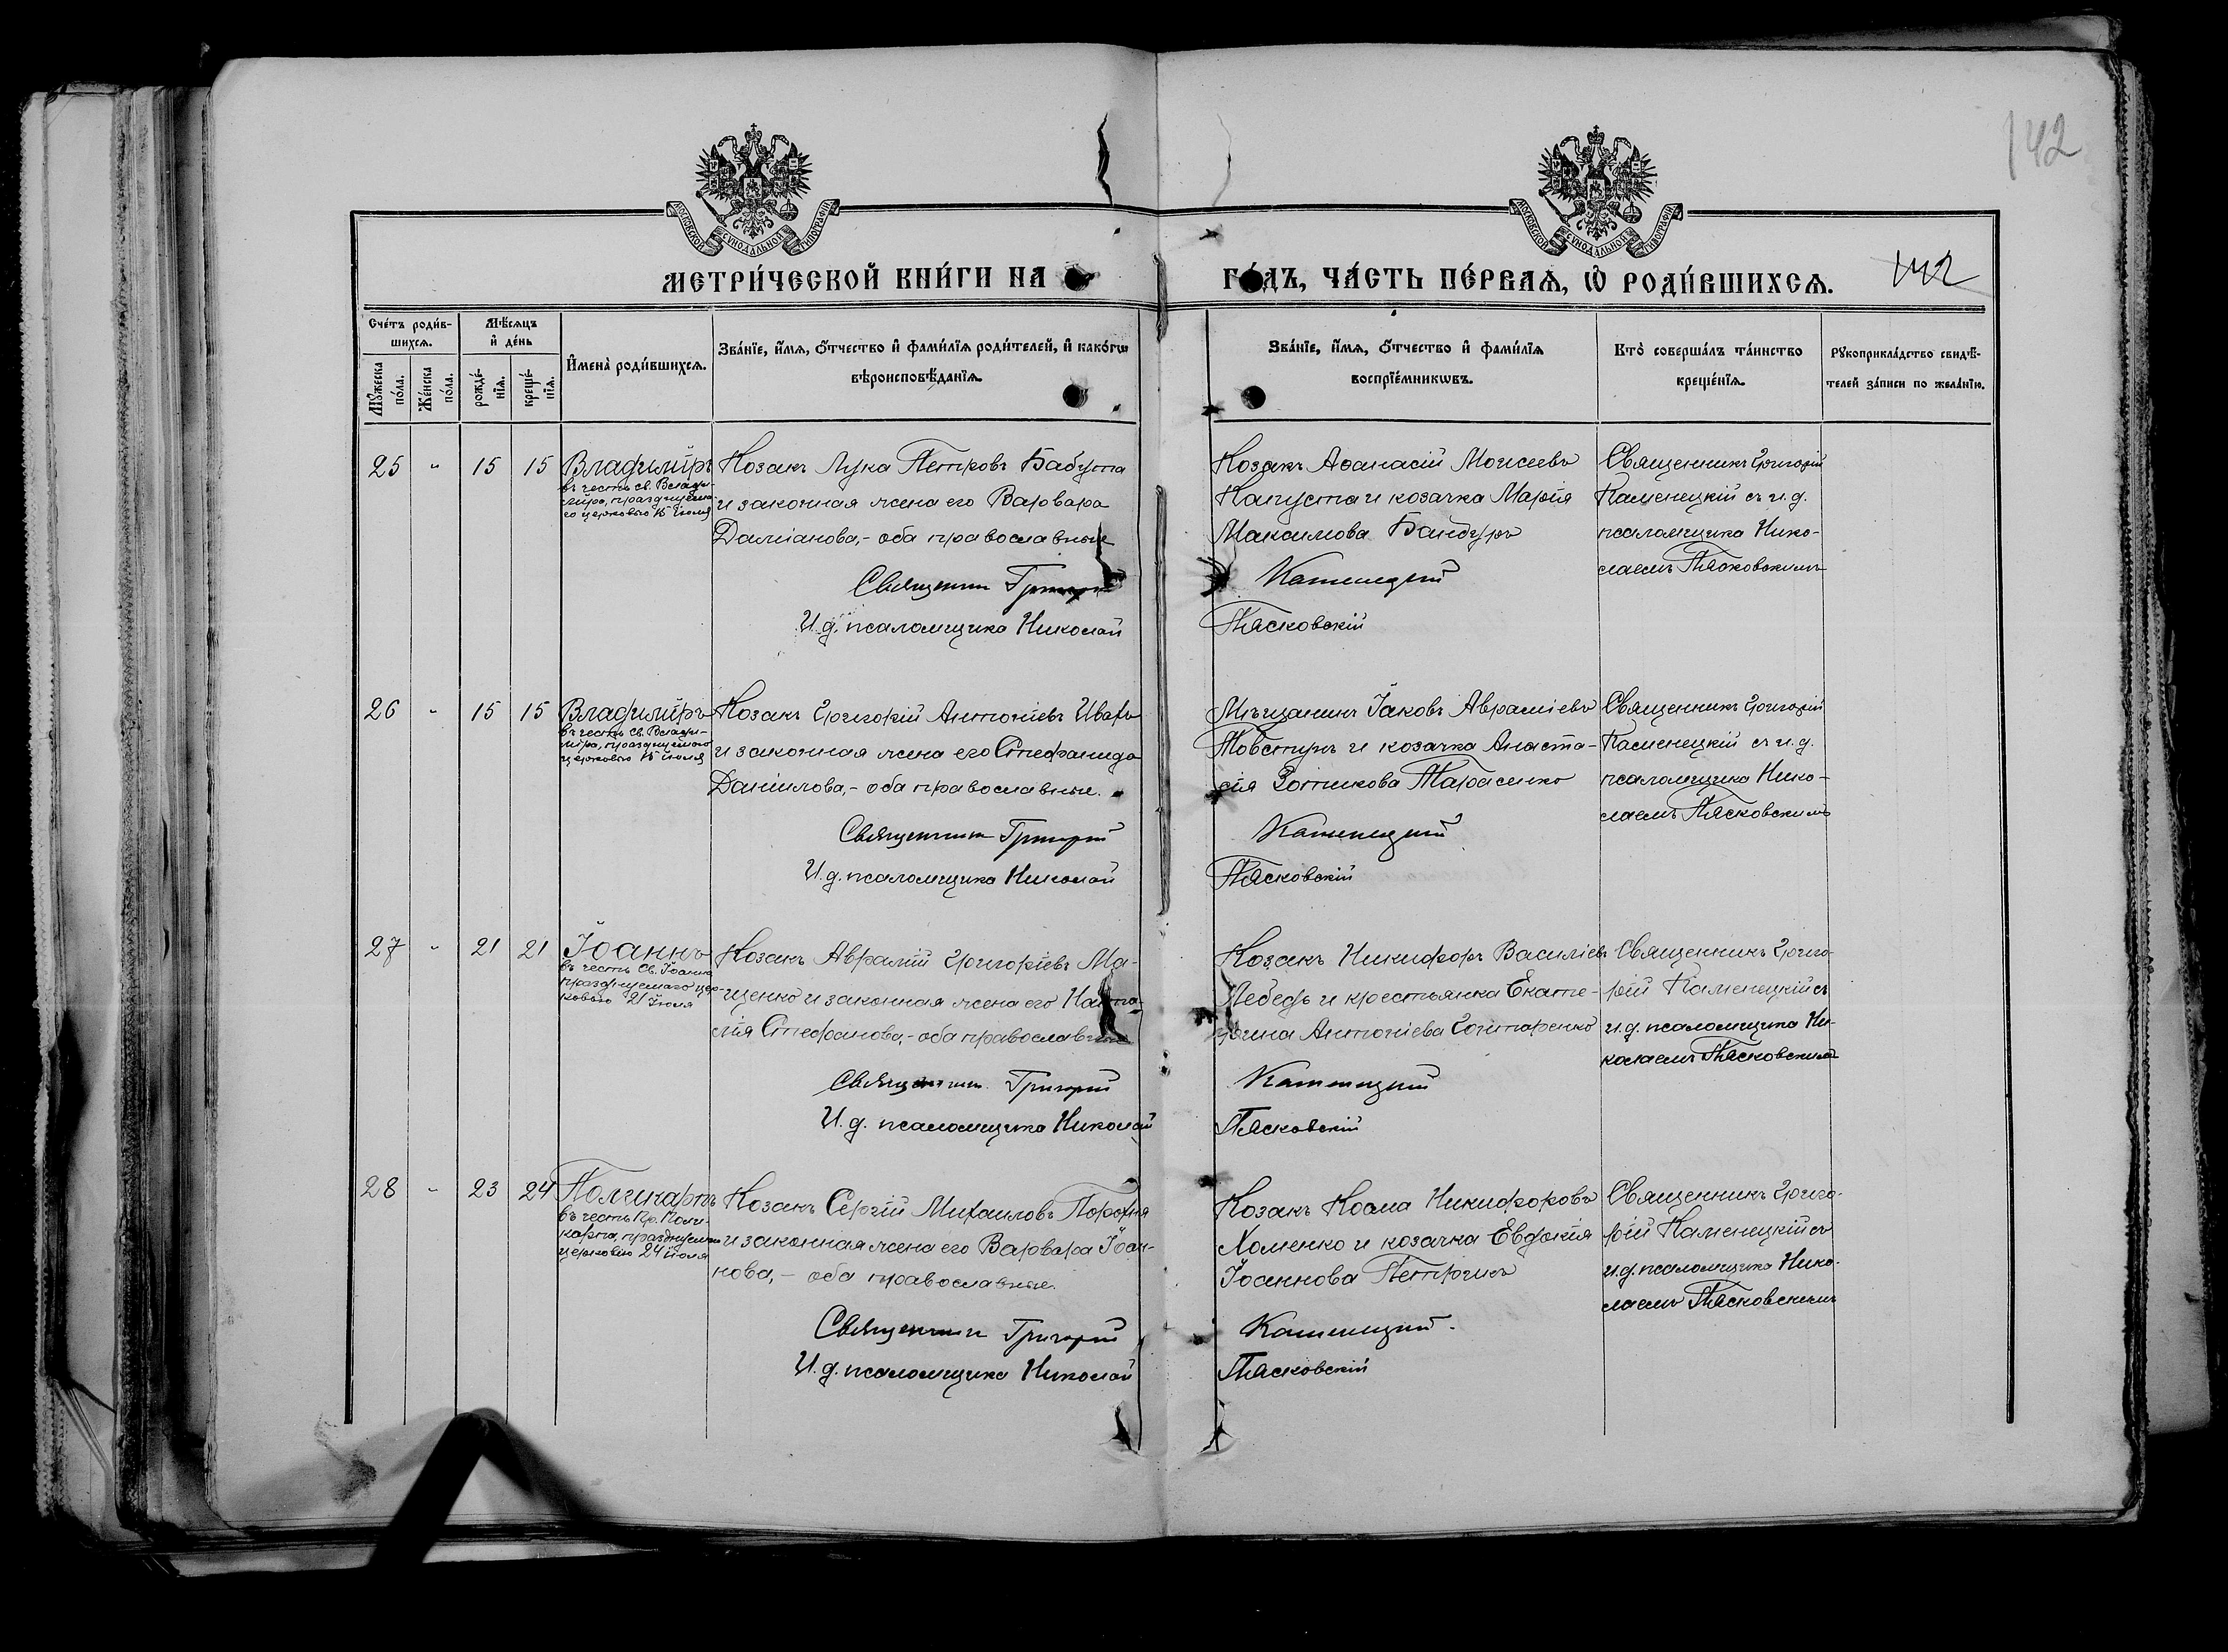 142
МОСКОВСКОЙ СѴНОДАЛЬНОЙ ТИПОГРАФІИ
МОСКОВСКОЙ СѴНОДАЛЬНОЙ ТИПОГРАФІИ
МЕТРИ́ЧЕСКОЙ КНИ́ГИ НА
ГО́ДЪ, ЧА́СТЬ ПЕ́РВАѦ, Ѡ РОДИ́ВШИХСѦ.
142
Сче́тъ роди́в-
шихсѧ.
Мѣ́сѧцъ
и де́нь
Мꙋ́жеска по́ла.
Же́нска по́ла.
рожде́-
нїѧ.
креще́-
нїѧ.
Имена̀ роди́вшихсѧ.
Зва́нїе, и́мѧ, ѻ́тчество и фами́лїѧ роди́телей, и како́гѡ
вѣроисповѣ́данїѧ.
Зва́нїе, и́мѧ, ѻ́тчество и фами́лїѧ
воспрїе́мникѡвъ.
Кто̀ соверша́лъ та́инство
креще́нїѧ.
Рꙋкоприкла́дство свидѣ́-
телей за́писи по жела́нїю.
25 " 15 15 Владиміръ
въ честь св. Влади-
міра, празднуема-
го церковью 15 іюля
Козакъ Лука Петровъ Бабута
и законная жена его Варвара
Даміанова,- оба православные
Священникъ Григорій
И.д. псаломщика Николай
Козакъ Аѳанасій Моисеевъ
Капуста и козачка Марія
Максимова Бандуръ
Каменецкій
Пясковскій
Священникъ Григорій
Каменецкій съ и.д.
псаломщика Нико-
лаемъ Пясковскимъ
26 " 15 15 Владиміръ
въ честь св. Влади-
міра, празднуемаго
церковью 15 іюля
Козакъ Григорій Антоніевъ Ивахъ
и законная жена его Стефанида
Даніилова,- оба православные.
Священникъ Григорій
И.д. псаломщика Николай
Мѣщанинъ Іаковъ Авраміевъ
Товстуръ и козачка Анаста-
сія Зотикова Тарасенко
Каменецкій
Пясковскій
Священникъ Григорій
Каменецкій съ и.д.
псаломщика Нико-
лаемъ Пясковскимъ
27 " 21 21 Іоаннъ
въ честь Св. Іоанна
празднуемаго цер-
ковью 21 Іюля
Козакъ Аврамій Григоріевъ Ма-
щенко и законная жена его
лія Стефанова,- оба православные
Священникъ Григорій
И.д. псаломщика Николай
Козакъ Никифоръ Василіевъ
Лебедь и крестьянка Екате-
рина Антоніева Гонтаренко
Каменецкій
Пясковскій
Священникъ Григо-
рій Каменецкій съ
и.д. псаломщика Ни-
колаемъ Пясковскимъ
28 " 23 24 Поликарпъ
въ честь Пр. Поли-
карпа, празднуемаго
церковью 24 іюля
Козакъ Сергій Михаиловъ Порохня
и законная жена его Варвара Іоан-
нова,- оба православные.
Священникъ Григорій
И.д. псаломщика Николай
Козакъ Косма Никифоровъ
Хоменко и козачка Евдокія
Іоаннова Петрикъ
Каменецкій.
Пясковскій
Священникъ Григо-
рій Каменецкій съ
и.д. псаломщика Нико-
лаемъ Пясковскимъ